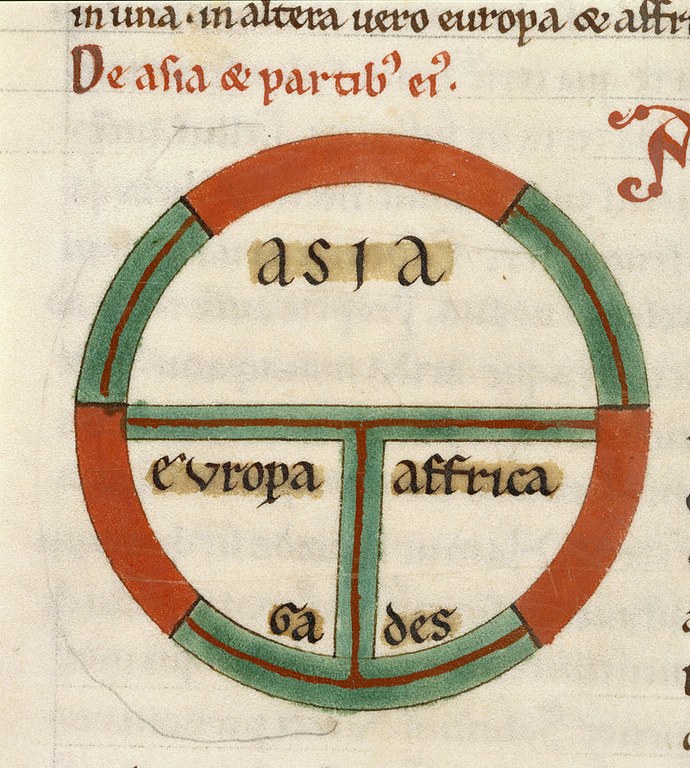 in una · in altera uero europa & affr
De asia & partib⁹ ei⁹.
asia
europa affrica
Ga des